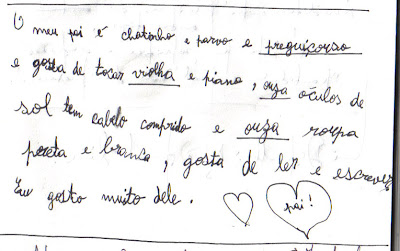 O meu pai é chatinho e parvo e preguiçorso
e gosta de tocar violha e piano, ouza óculos de
sol tem cabelo comprido e ouza roupa
pereta e branca, gosta de ler e escrever
Eu gosto muito dele.
pai!